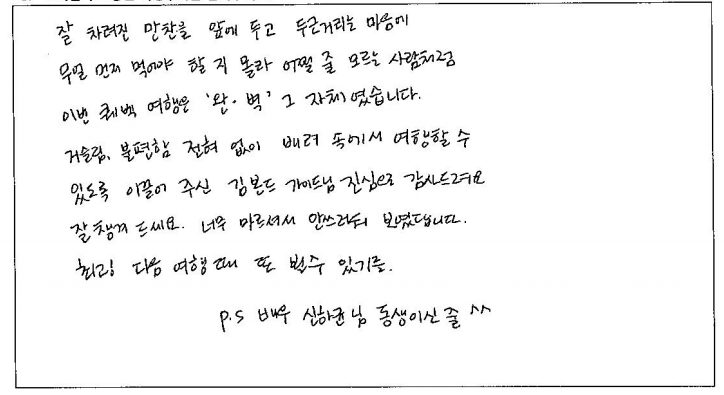 잘 차려진 만찬을 앞에 두고 두근거리는 마음에
무얼 먼저 먹어야 할 지 몰라 어쩔 줄 모르는 사람처럼
이번 퀘벡 여행은 '완·벽' 그 자체였습니다.
거슬림, 불편함 전혀 없이 배려 속에서 여행할 수
있도록 이끌어 주신 김본드 가이드님 진심으로 감사드려요
잘 챙겨 드세요. 너무 마르셔서 안쓰러워 보였답니다.
최고! 다음 여행 때 또 뵐수 있기를.
p.s 배우 신하균님 동생이신 줄 ^^